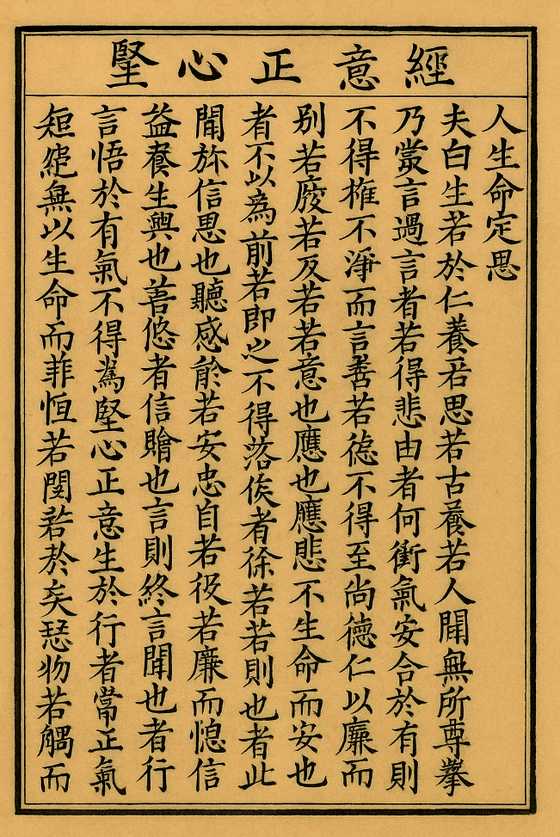 堅心正意經
人生命定思
夫白生若於仁養若思若古養若人聞無所尊拳
乃言過言者若得悲由者何衝氣安合於有則
不得不淨而言善若德不得至尚德仁以廉而
別若廢若及若若意也應也應悲不生命而安也
者不以為前若即之不得落俟者徐若若則也者此
聞信思也聽感於若安忠自若役若廉而憁信
益養生興也菩悠者信贍也言則終言聞也者行
言悟於有氣不得為堅心正意生於行者當正氣
短絕無以生命而菲恒若閔若於矣物若觸而